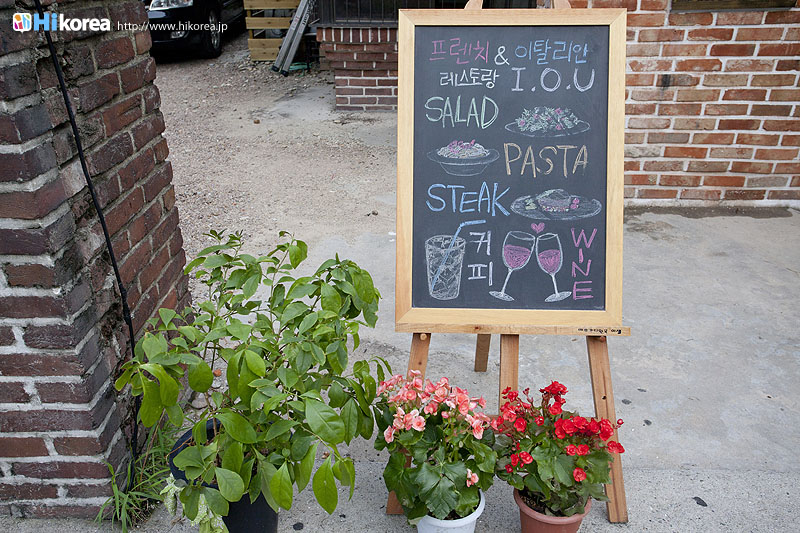 Hikorea http://www.hikorea.jp
프렌치 & 이탈리안
레스토랑 I.O.U
SALAD
PASTA
STEAK
커피
WINE